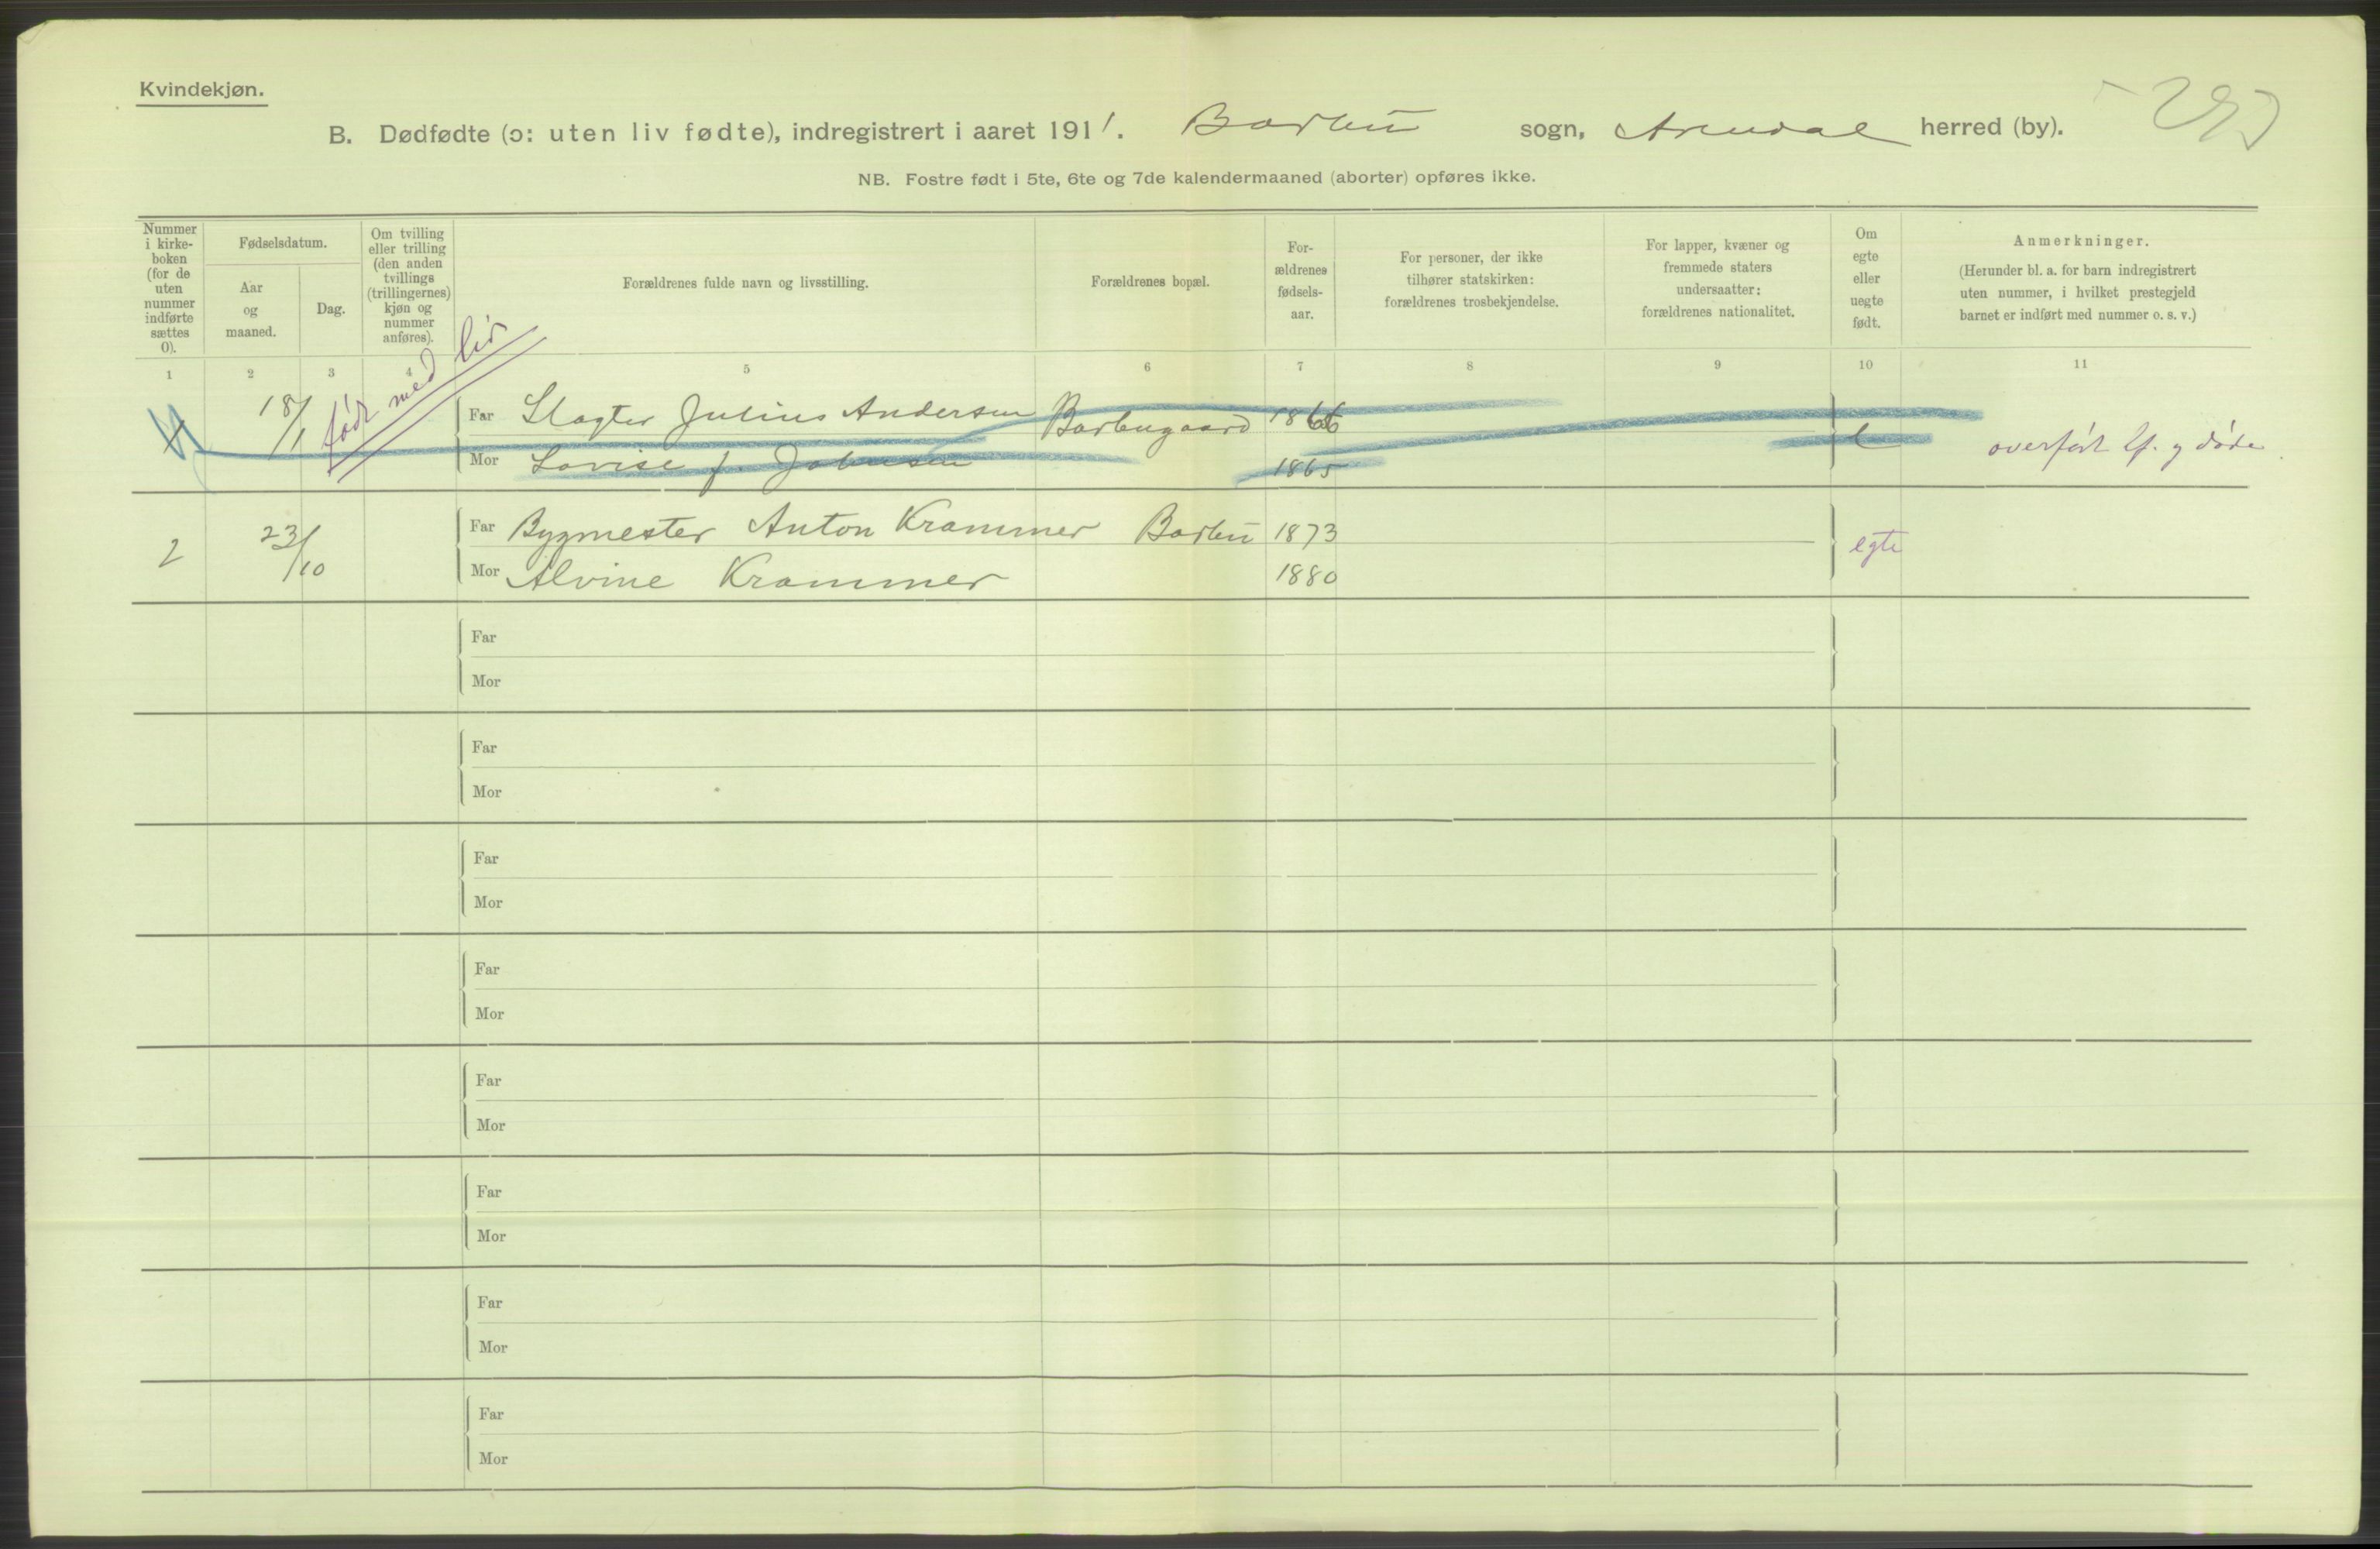 Kvindekjøn.
B. Dødfødte (ɔ: uten liv fødte), indregistrert i aaret 1911. Barbu sogn, Arendal herred (by).
NB. Fostre født i 5te, 6te og 7de kalendermaaned (aborter) opføres ikke.
Nummer
i kirke-
boken
(for de
uten
nummer
indførte
sættes
0).
Fødselsdatum.
Aar
og
maaned.
Dag.
Om tvilling
eller trilling
(den anden
tvillings
(trillingernes)
kjøn og
nummer
anføres).
Forældrenes fulde navn og livsstilling.
Forældrenes bopæl.
For-
ældrenes
fødsels-
aar.
For personer, der ikke
tilhører statskirken:
forældrenes trosbekjendelse.
For lapper, kvæner og
fremmede staters
undersaatter:
forældrenes nationalitet.
Om
egte
eller
uegte
født.
Anmerkninger.
(Herunder bl. a. for barn indregistrert
uten nummer, i hvilket prestegjeld
barnet er indført med nummer o. s. v.)
1 2 3 4 5 6 7 8 9 10 11
født med liv
1 18/1 Far Slagter Julius Andersen Barbugaard 1866
Mor Lovise f. Jabnsen 1865 e overført lf. og døde
2 23/10 Far Bygmester Anton Krammer Barbu 1873 egte
Mor Alvine Krammer 1880
Far
Mor
Far
Mor
Far
Mor
Far
Mor
Far
Mor
Far
Mor
Far
Mor
Far
Mor